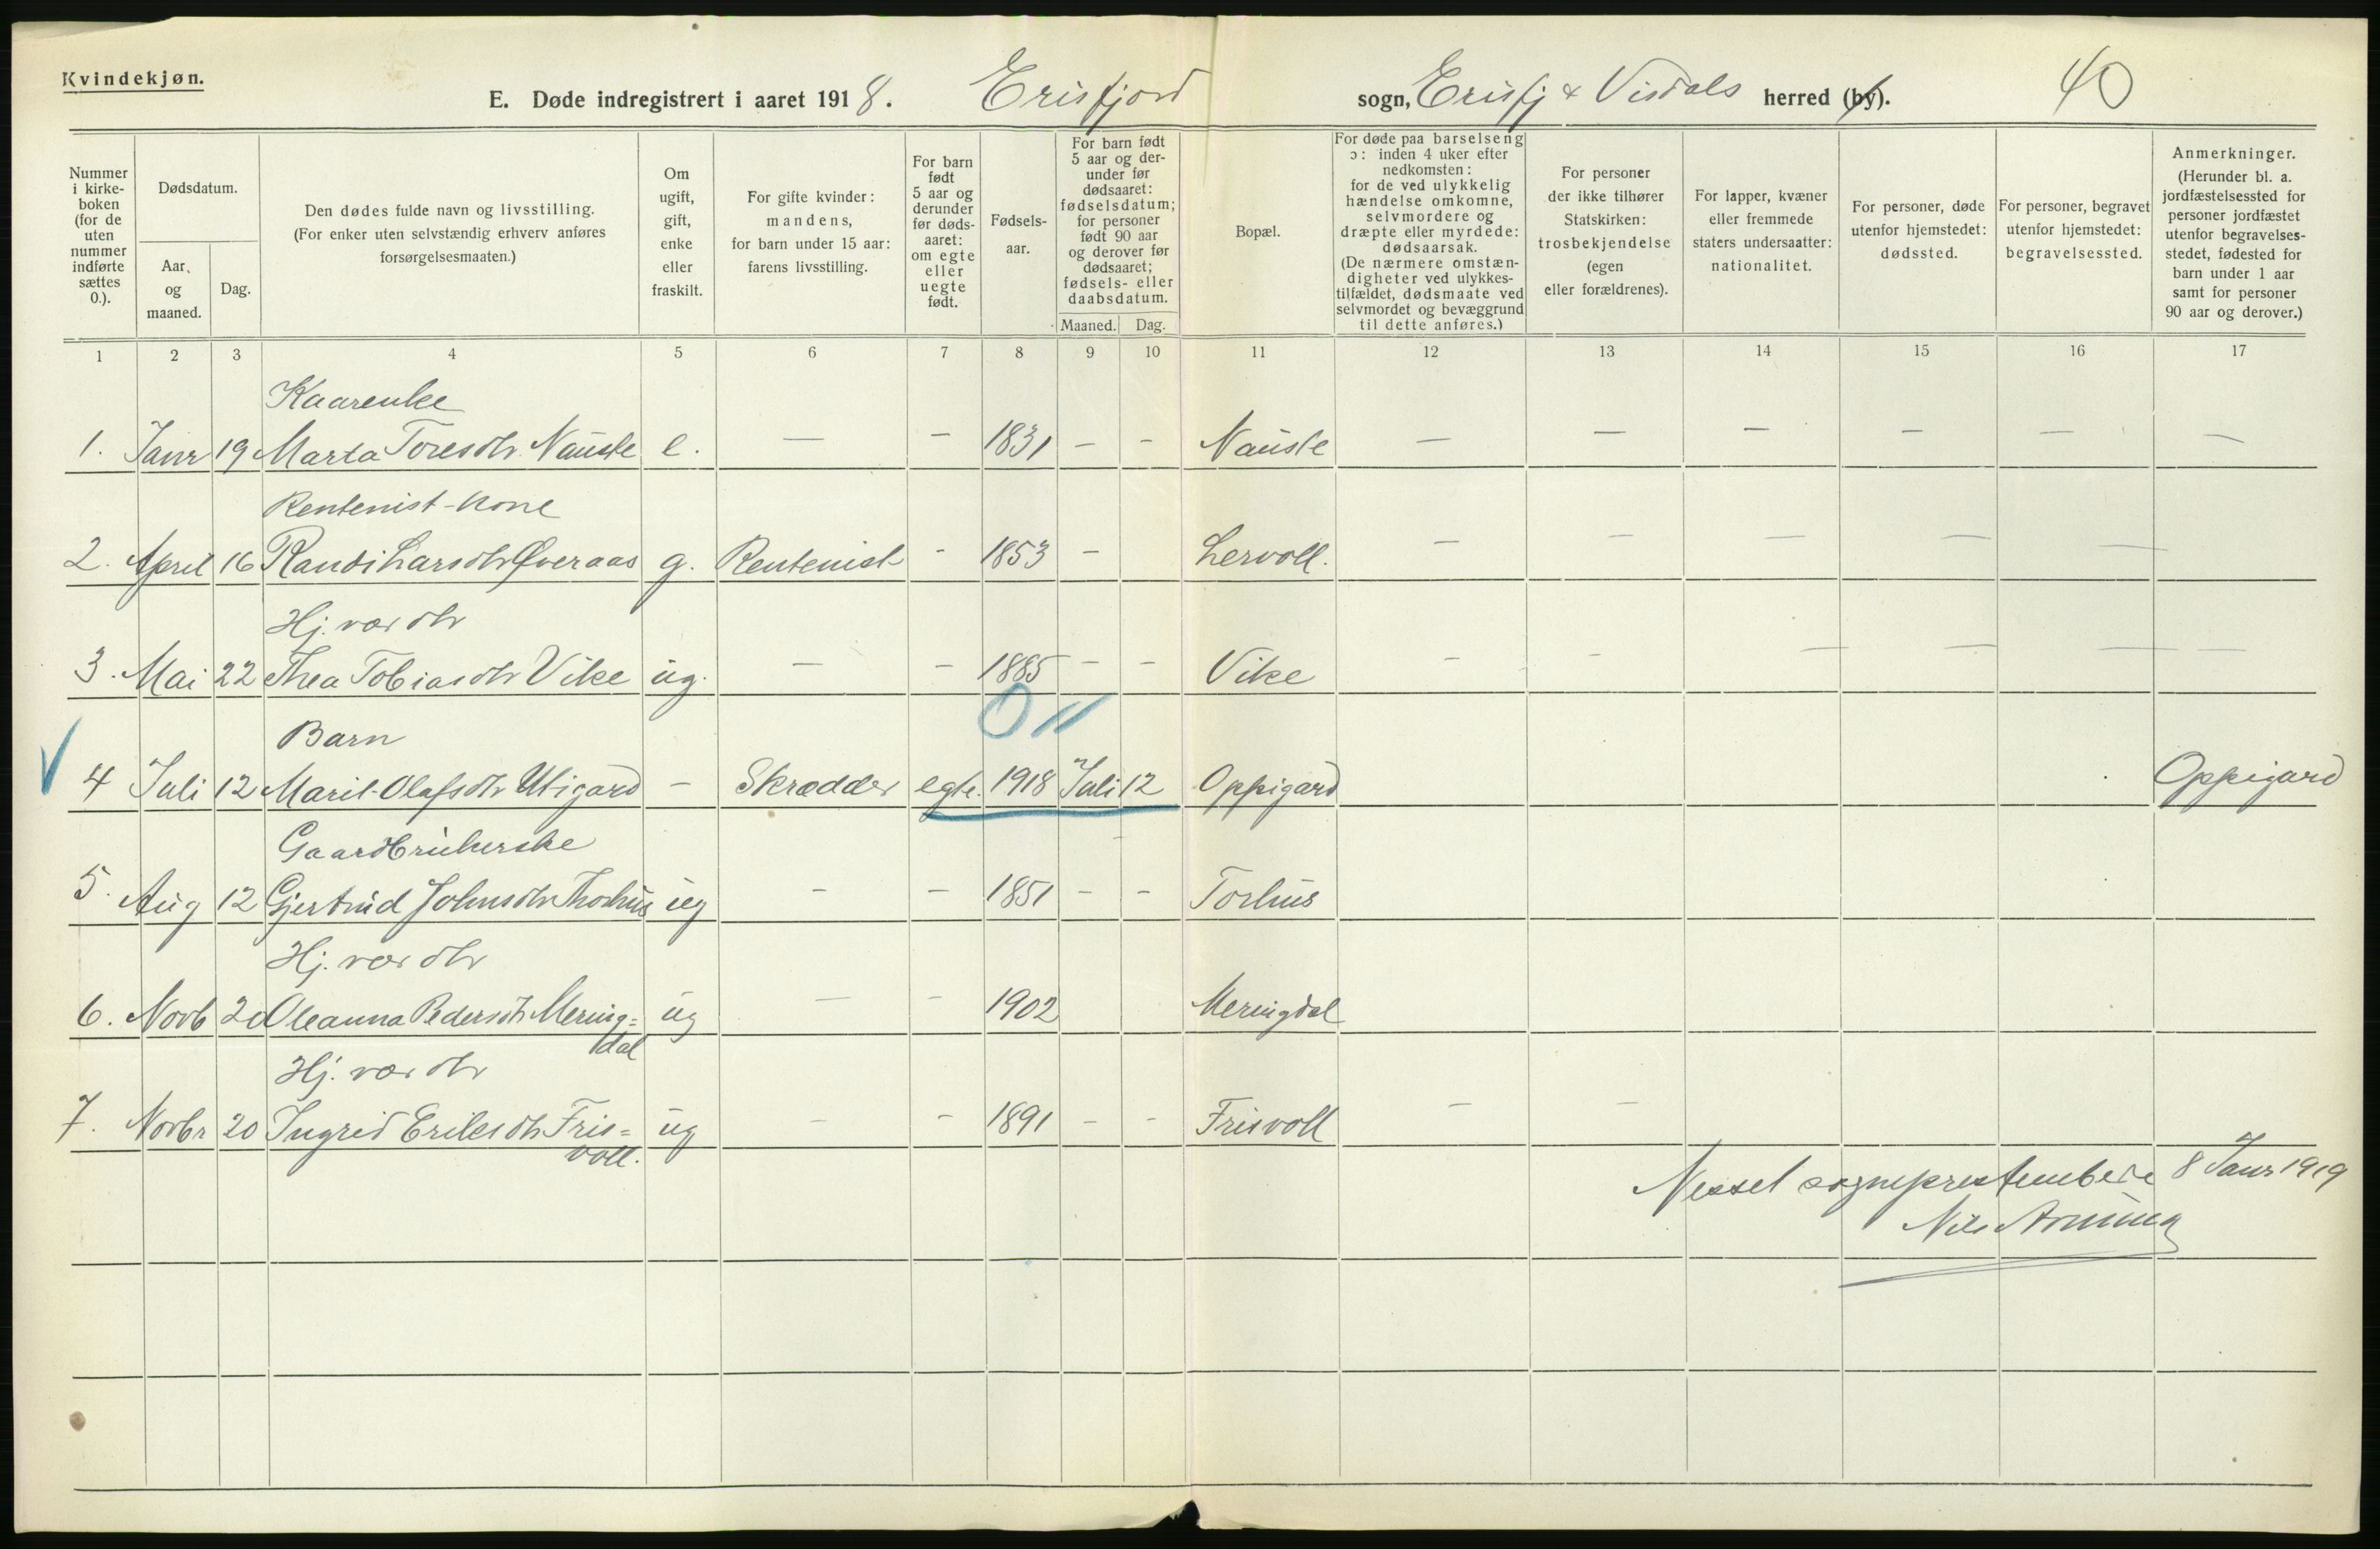 Kvindekjøn.
E. Døde indregistrert i aaret 1918. Erisfjord sogn, Erisfj & Visdals herred (by). 40
Nummer
i kirke-
boken
(for de
uten
nummer
indførte
sættes
0.).
Dødsdatum.
Aar,
og
maaned.
Dag.
Den dødes fulde navn og livsstilling.
(For enker uten selvstændig erhverv anføres
forsørgelsesmaaten.)
Om
ugift,
gift,
enke
eller
fraskilt.
For gifte kvinder:
mandens,
for barn under 15 aar:
farens livsstilling.
For barn
født
5 aar og
derunder
før døds-
aaret:
om egte
eller
uegte
født.
Fødsels-
aar.
For barn født
5 aar og der-
under før
dødsaaret:
fødselsdatum;
for personer
født 90 aar
og derover før
dødsaaret;
fødsels- eller
daabsdatum.
Maaned. Dag.
Bopæl.
For døde paa barselseng
ɔ: inden 4 uker efter
nedkomsten:
for de ved ulykkelig
hændelse omkomne,
selvmordere og
dræpte eller myrdede:
dødsaarsak.
(De nærmere omstæn-
digheter ved ulykkes-
tilfældet, dødsmaate ved
selvmordet og bevæggrund
til dette anføres.)
For personer
der ikke tilhører
Statskirken:
trosbekjendelse
(egen
eller forældrenes).
For lapper, kvæner
eller fremmede
staters undersaatter:
nationalitet.
For personer, døde
utenfor hjemstedet:
dødssted.
For personer, begravet
utenfor hjemstedet:
begravelsessted.
Anmerkninger.
(Herunder bl. a.
jordfæstelsessted for
personer jordfæstet
utenfor begravelses-
stedet, fødested for
barn under 1 aar
samt for personer
90 aar og derover.)
1 2 3 4 5 6 7 8 9 10 11 12 13 14 15 16 17
Kaarenke
1. Janr 19 Marta Toresdtr Nauste e. — — 1831 — — Nauste — — — — — —
Rentenist-kone
2. April 16 Randi Larsdtr Øveraas g. Rentenist - 1853 — Lervoll. — — — — —
Hj. vær dtr
3. Mai 22 Thea Tobiasdtr Vike ug. — — 1885 — — Vike — — — — — —
0 11
Barn
4 Juli 12 Marit Olafsdtr Utigard — Skrædder egte. 1918 Juli 12 Oppigard Oppigard
Gaardbrukerske
5. Aug 12 Gjertrud Johnsdtr Thorhus ug — — 1851 — — Torhus
Hj. vær dtr
6. Novb 20 Oleanna Pedersdtr Mering= ug — — 1902 Meringdal
dal
Hj. vær dtr
7. Novbr 20 Ingrid Eriksdtr Fris= ug — — 1891 — — Frisvoll — —
voll.
Nesset sogneprestembede 8 Janr 1919
Nils